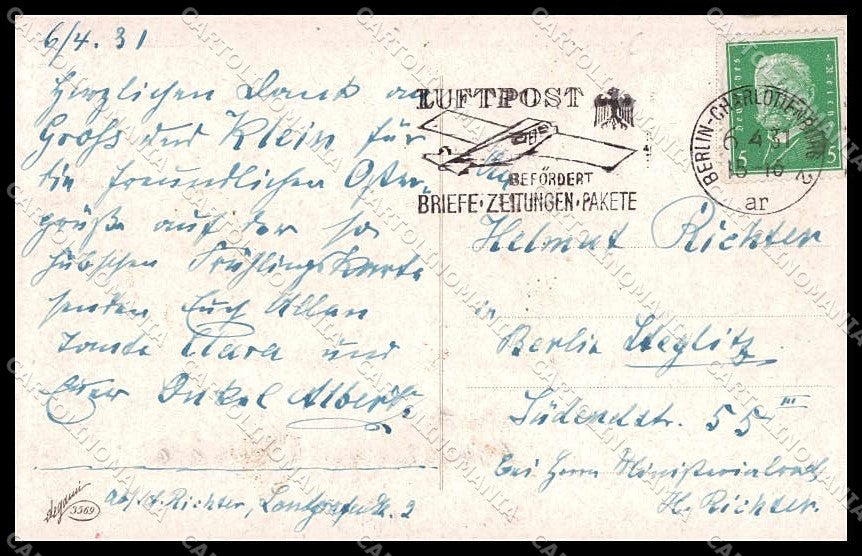 6/4.31
Herzlichen Dank an
Groß und Klein für
die freundlichen Oster-
grüße auf der so
hübschen Frühlingskarte
senden Euch Allen
Tante Clara und
Euer Onkel Albert.
Abs. A. Richter, 2
Degami
3569
LUFTPOST
BEFÖRDERT
BRIEFE·ZEITUNGEN·PAKETE
BERLIN-CHARLOTTENBURG 2
ar
Deutsches Reich
5 5
Helmut Richter
in
Berlin Steglitz
Südendstr. 55 III
bei Herrn Ministerialrat
H. Richter.
CARTOLINOMANIA